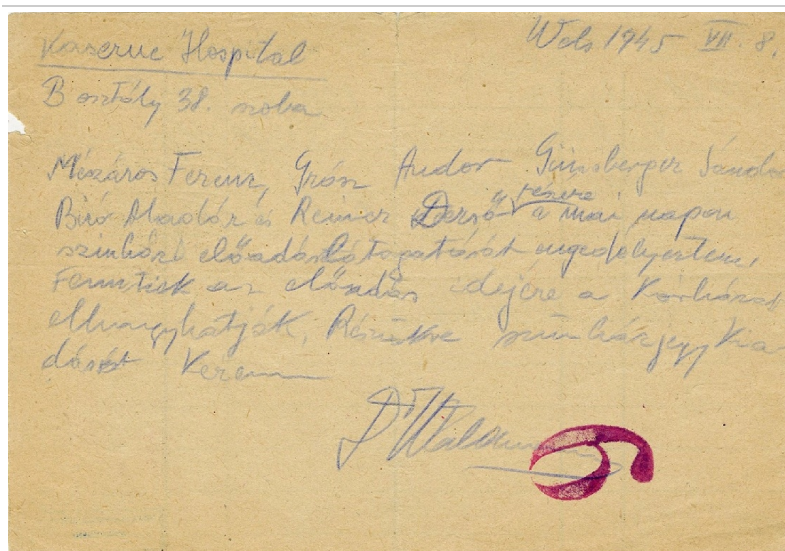 Kaserne Hospital
Wels 1945 VII. 8.
B osztály 38. szoba
Mészáros Ferenc, Grósz Andor Günsberger Sándor
Biró Aladár és Reiner Dezső részére a mai napon
szinházi előadás látogatását engedélyeztem,
Fenntiek az előadás idejére a Kórházat
elhagyhatják, Részükre szinházjegy kia
dását Kérem
Dr